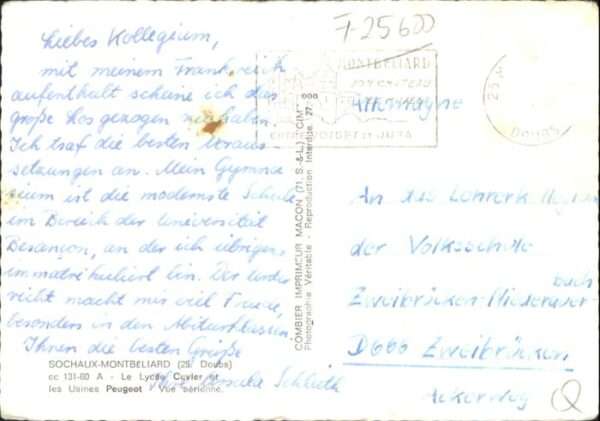 F-25600
Liebes Kollegium,
mit meinem Frankreich
aufenthalt scheine ich das
große Los gezogen zu haben.
Ich traf die besten Voraus-
setzungen an. Mein Gymna
sium ist die modernste Schule
im Bereich der Universität
Besançon, an der ich übrigens
immatrikuliert bin. Der Unter
richt macht mir viel Freude,
besonders in den Abiturklassen.
Ihnen die besten Grüße
SOCHAUX-MONTBÉLIARD (25. Doubs)
cc 131-60 A - Le Lycée Cuvier et
les Usines Peugeot - Vue aérienne.
COMBIER IMPRIMEUR MACON (71. S.-&-L.) "CIM"
Photographie Véritable - Reproduction Interdite
MONTBELIARD
JURA
25
Doubs
Allemagne
An das Lehrerkollegium
der Volksschule
Zweibrücken-Niederauer-
bach
D 660 Zweibrücken
Ackerweg